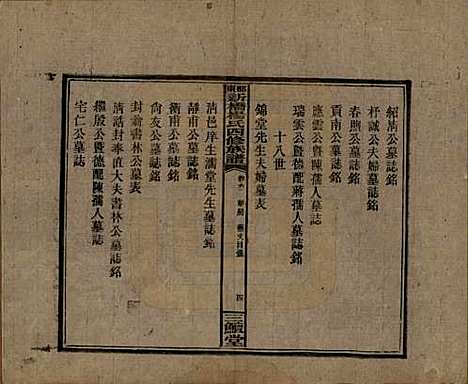 紹濤公墓誌銘
杼誠公夫婦墓誌銘
春照公墓誌銘
貢南公墓誌銘
應雲公暨陳孺人墓誌
瑞雲公暨德配蔣孺人墓誌銘
十八世
錦堂先生夫婦墓表
新橋 氏四修族譜
四
三餽堂
清邑庠生 堂先生墓誌銘
靜甫公墓誌銘
衡甫公墓誌銘
向友公墓誌銘
封翁書林公墓表
清誥封奉直大夫書林公墓誌銘
繼殷公暨德配陳孺人墓誌
宅仁公墓誌